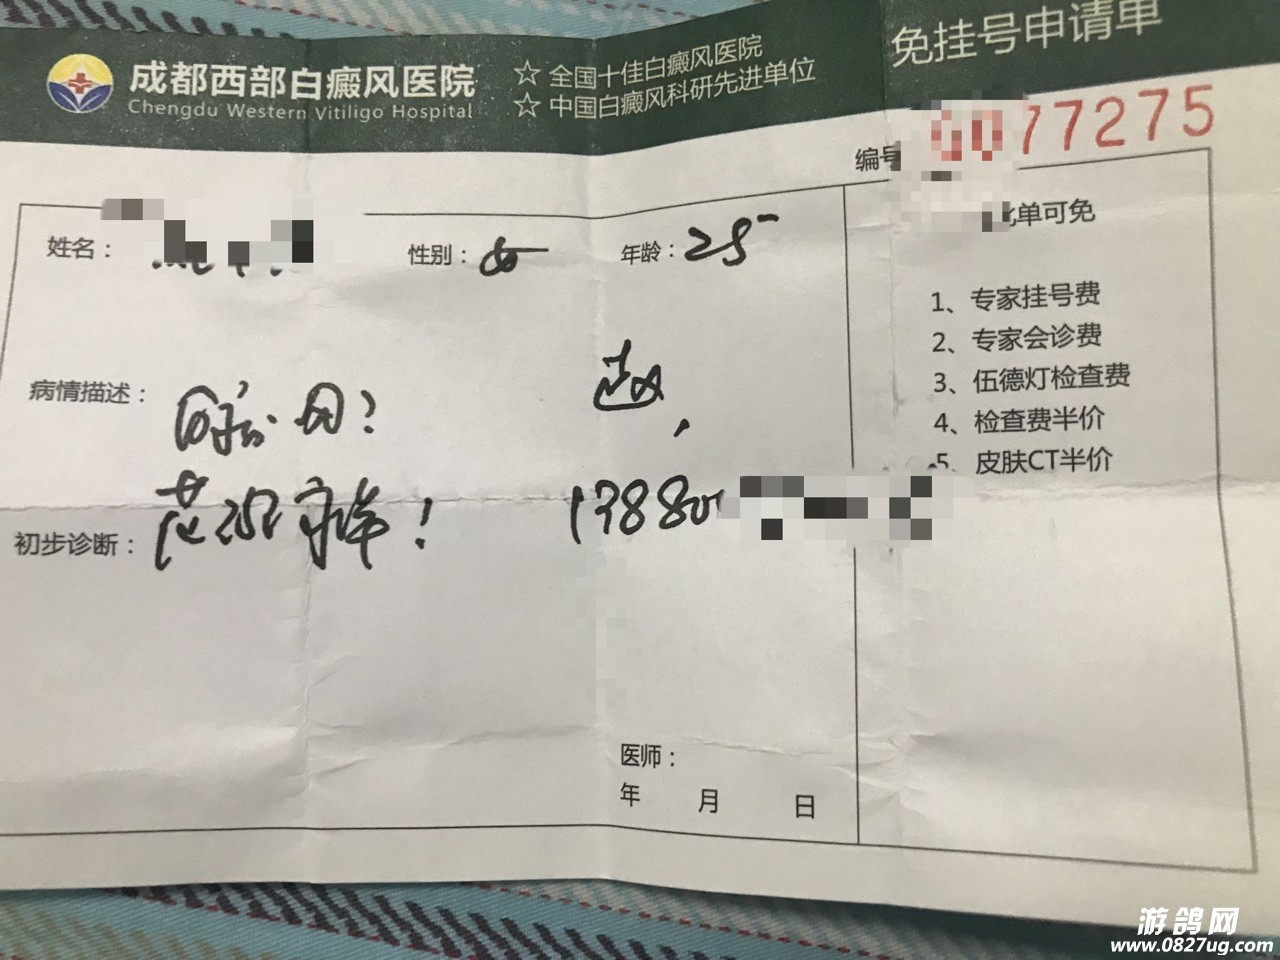 成都西部白癜风医院
Chengdu Western Vitiligo Hospital
☆ 全国十佳白癜风医院
☆ 中国白癜风科研先进单位
免挂号申请单
编号 0077275
姓名：
性别：女
年龄：25
单可免
1、专家挂号费
2、专家会诊费
3、伍德灯检查费
4、检查费半价
5、皮肤CT半价
病情描述：
初步诊断：
13880
医师：
年 月 日
游鸽网
www.0827ug.com